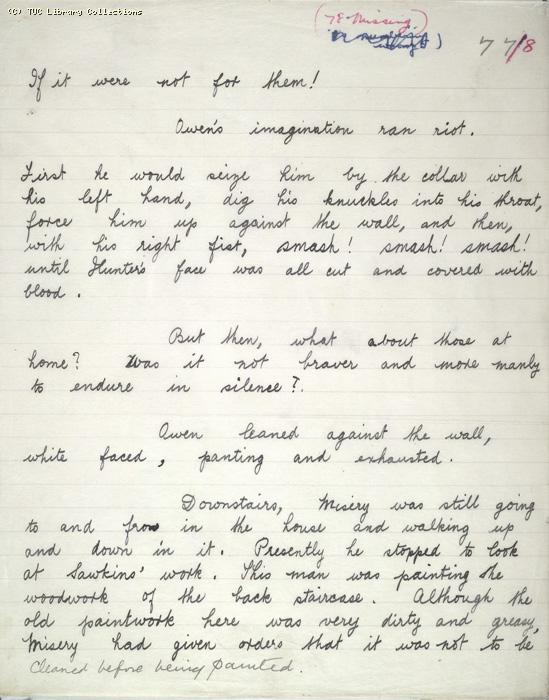 (C) TUC Library Collections
(78 Missing)
77/8
If it were not for them!
Owen's imagination ran riot.
First he would seize him by the collar with
his left hand, dig his knuckles into his throat,
force him up against the wall, and then,
with his right fist, smash! smash! smash!
until Hunter's face was all cut and covered with
blood.
But then, what about those at
home? Was it not braver and more manly
to endure in silence?
Owen leaned against the wall,
white faced, panting and exhausted.
Downstairs, Misery was still going
to and fro in the house and walking up
and down in it. Presently he stopped to look
at Sawkins' work. This man was painting the
woodwork of the back staircase. Although the
old paintwork here was very dirty and greasy,
Misery had given orders that it was not to be
cleaned before being painted.